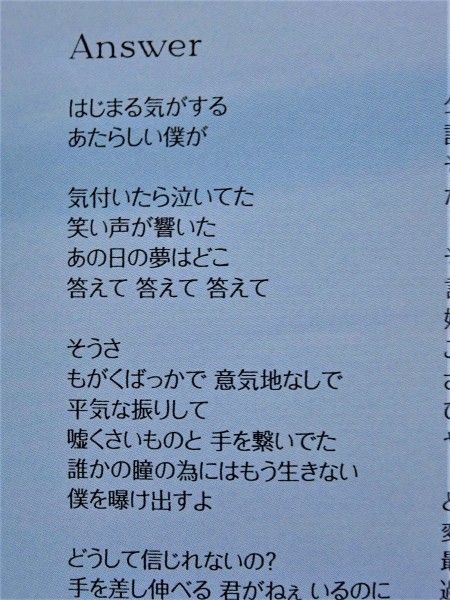 Answer
はじまる気がする
あたらしい僕が
気付いたら泣いてた
笑い声が響いた
あの日の夢はどこ
答えて 答えて 答えて
そうさ
もがくばっかで 意気地なしで
平気な振りして
嘘くさいものと 手を繋いでた
誰かの瞳の為にはもう生きない
僕を曝け出すよ
どうして信じれないの?
手を差し伸べる 君がねぇ いるのに